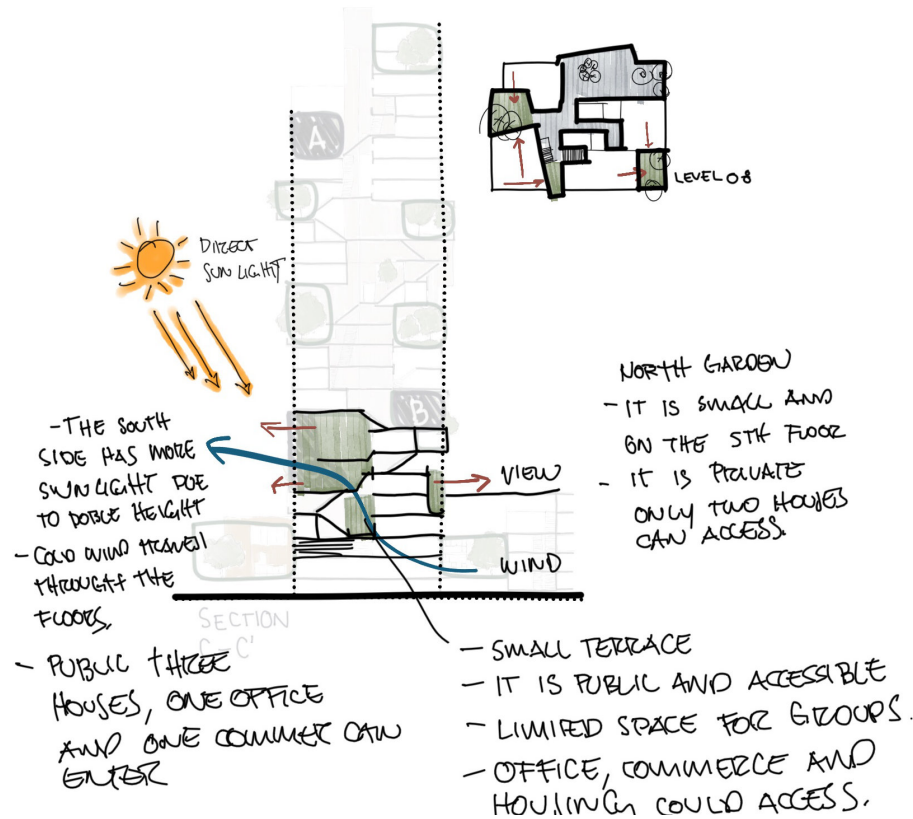 A
LEVEL 08
DIRECT
SUN LIGHT
NORTH GARDEN
- IT IS SMALL AND
ON THE 5TH FLOOR
- IT IS PRIVATE
ONLY TWO HOUSES
CAN ACCESS.
B
- THE SOUTH
SIDE HAS MORE
SUNLIGHT DUE
TO DOBLE HEIGHT
- COLD WIND TRAVEL
THROUGHT THE
FLOORS.
- PUBLIC THREE
HOUSES, ONE OFFICE
AND ONE COMMER CAN
ENTER
VIEW
WIND
SECTION
C - C'
- SMALL TERRACE
- IT IS PUBLIC AND ACCESSIBLE
- LIMITED SPACE FOR GROUPS.
- OFFICE, COMMERCE AND
HOUSING COULD ACCESS.